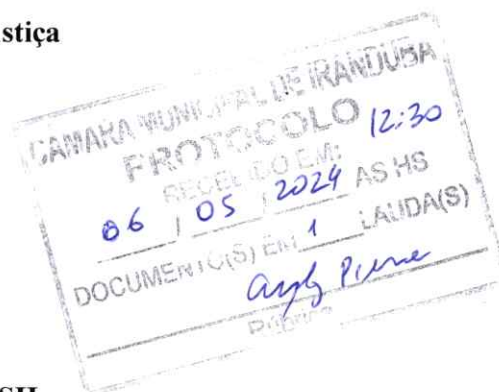 stiça
CÂMARA MUNICIPAL DE IRANDUBA
PROTOCOLO 12:30
RECEBIDO EM:
06 / 05 / 2024 AS HS
DOCUMENTO(S) EM 1 LAUDA(S)
Rúbrica
SH